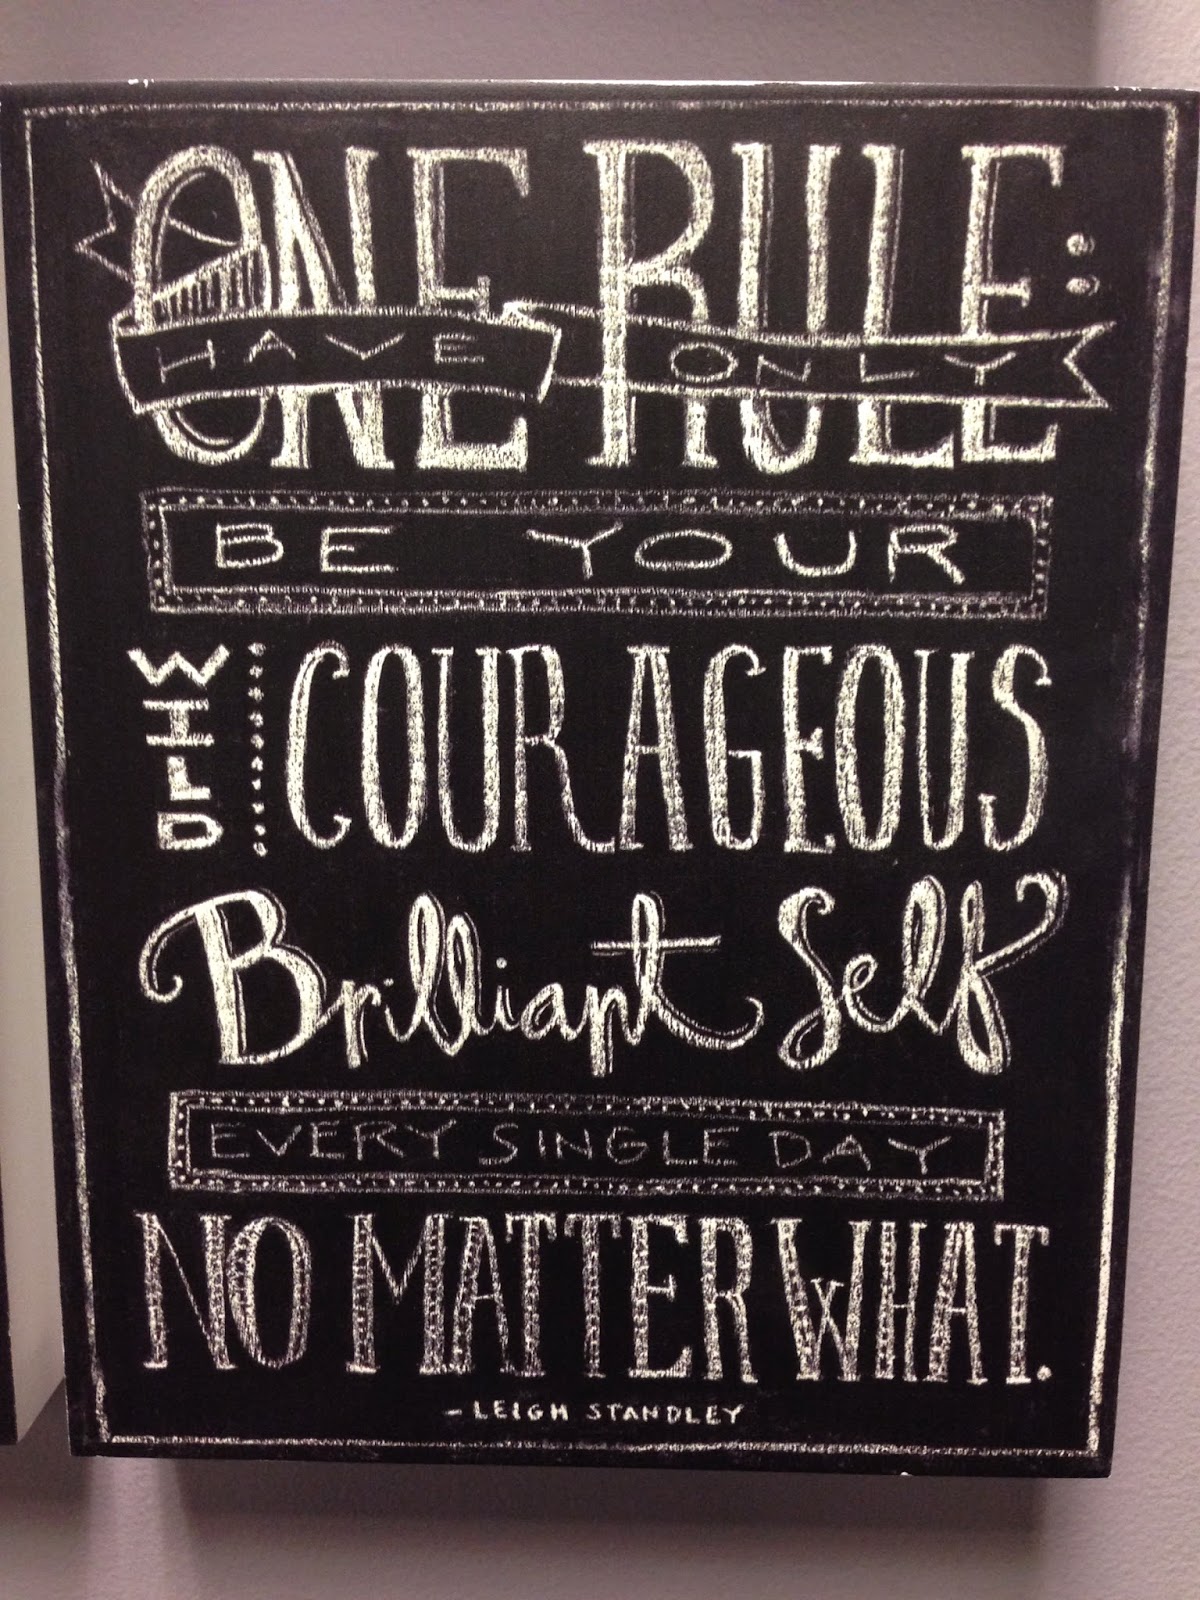 HAVE ONLY
ONE RULE:
BE YOUR
WILD COURAGEOUS
Brilliant Self
EVERY SINGLE DAY
NO MATTER WHAT.
- LEIGH STANDLEY